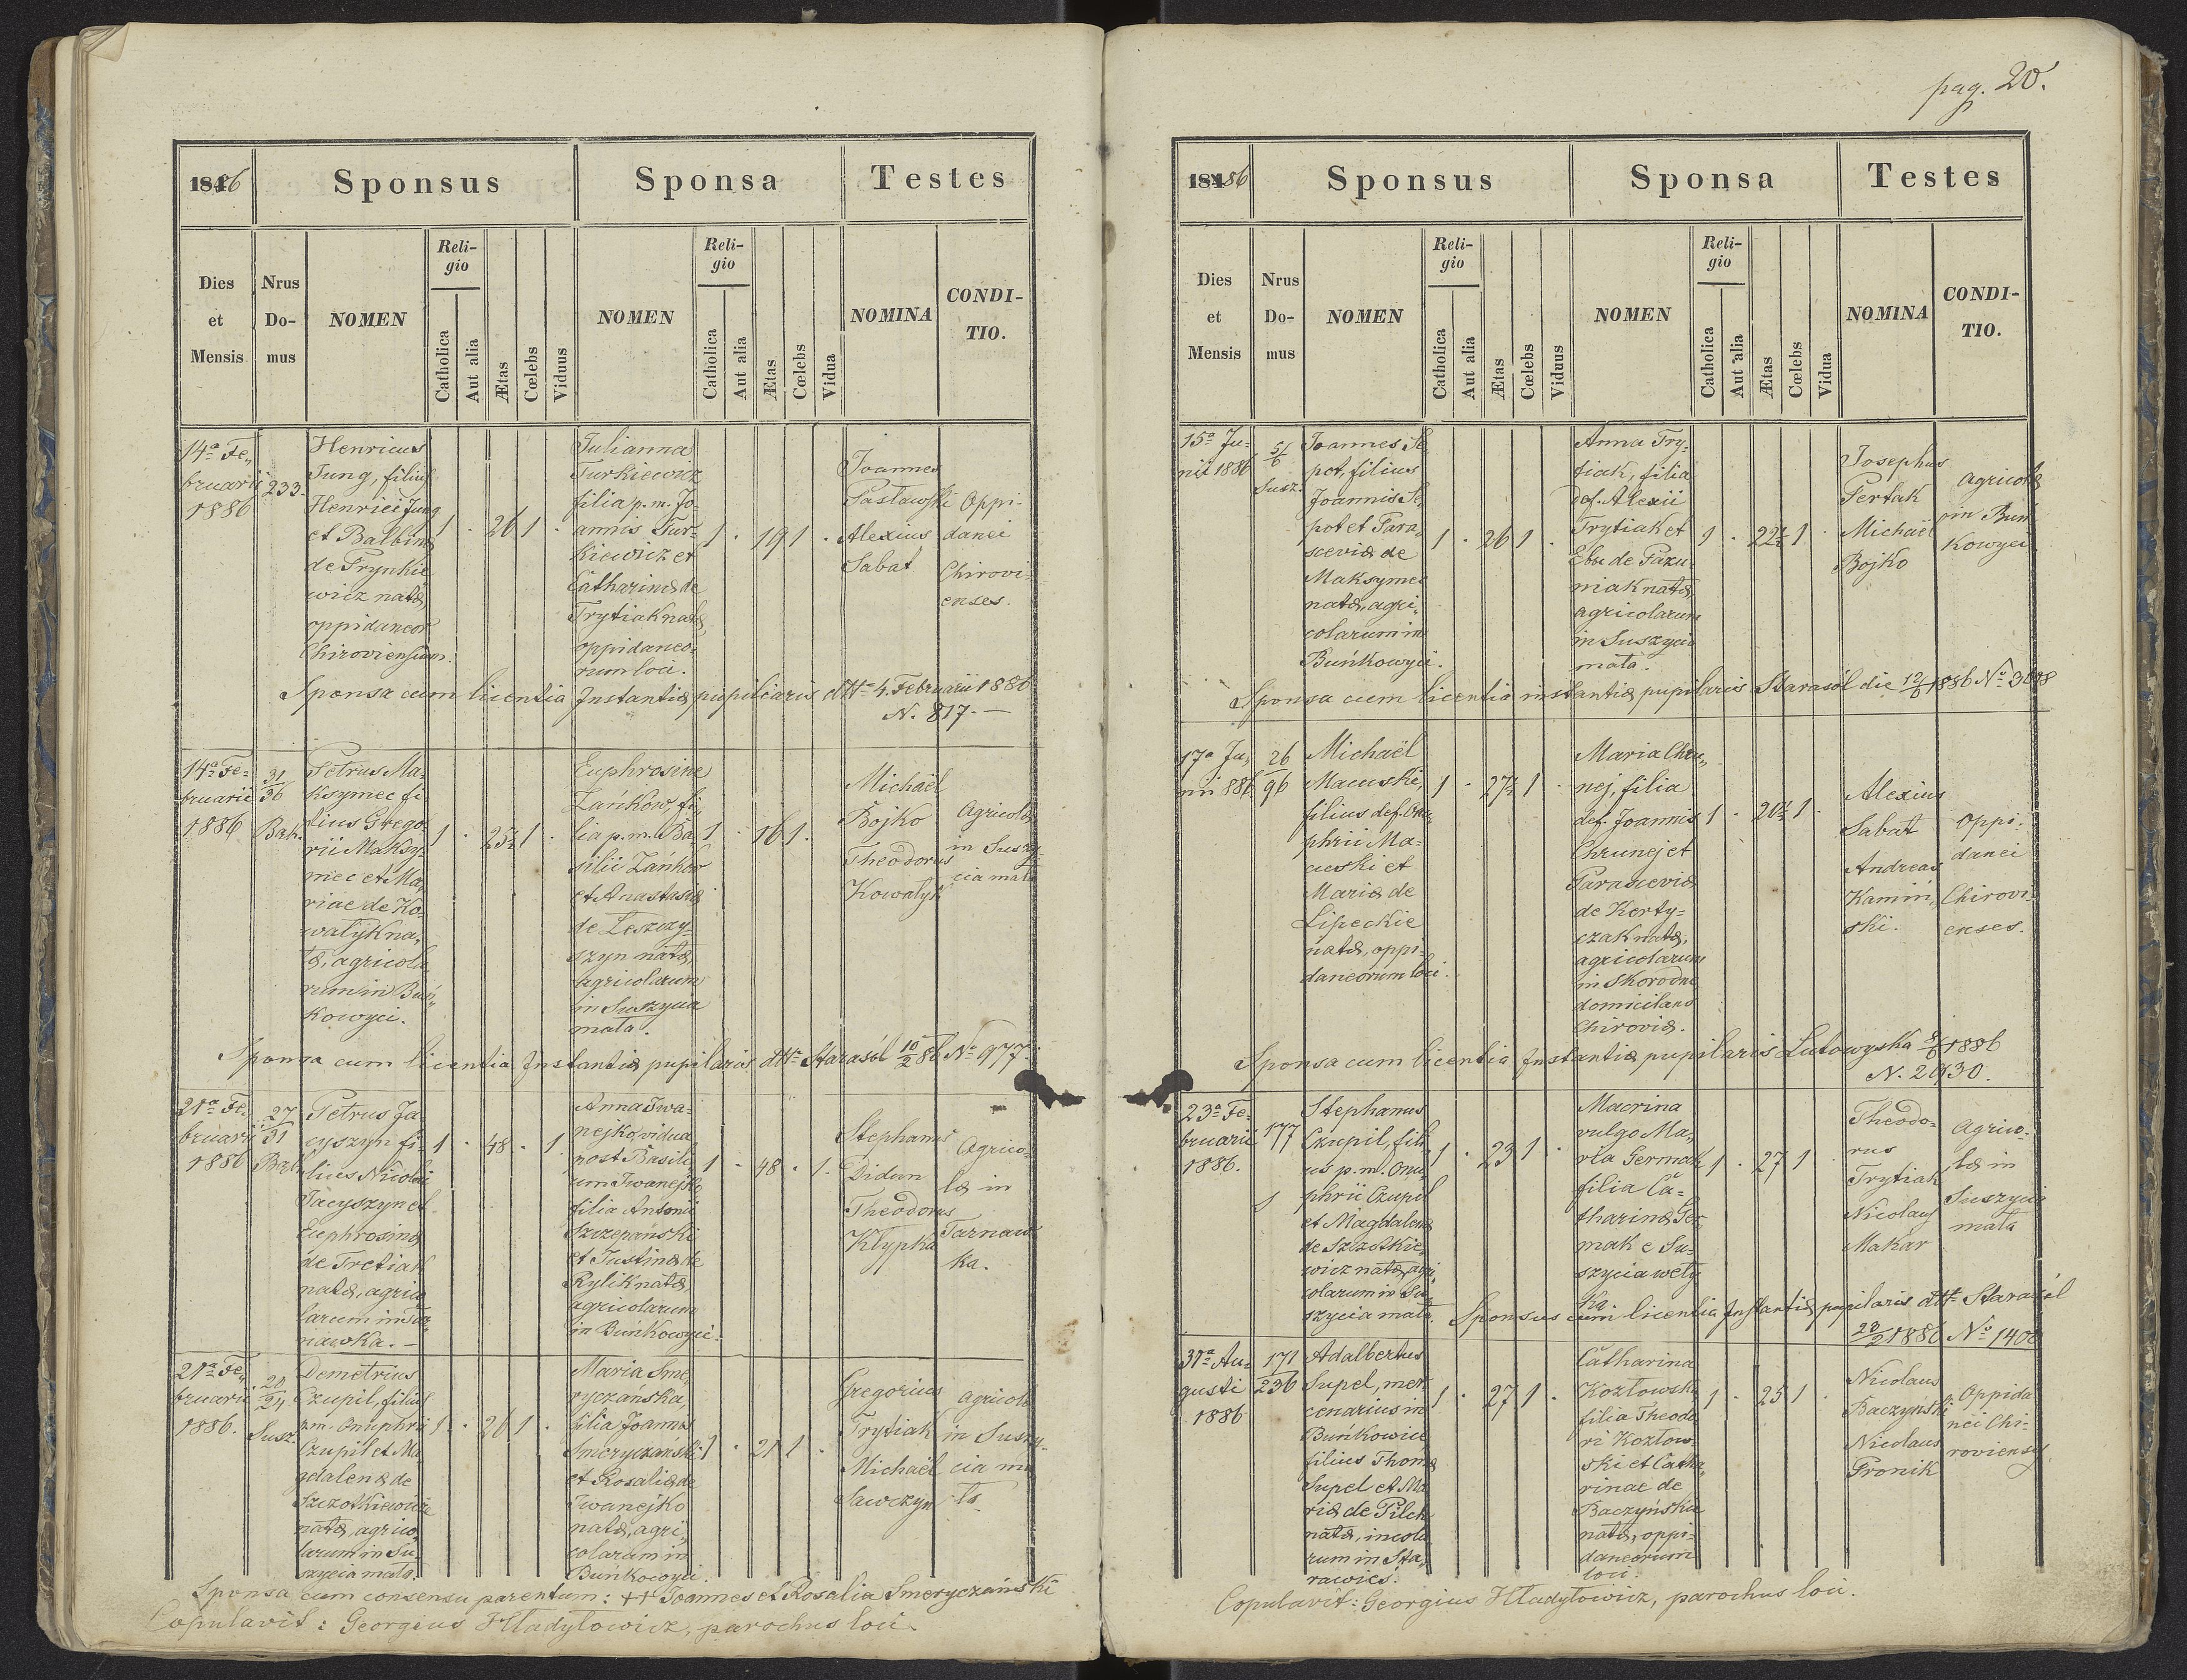 1886
Sponsus
Sponsa
Testes
Dies et Mensis
Nrus Do- mus
NOMEN
Reli- gio
Catholica
Aut alia
Ætas
Cœlebs
Viduus
NOMEN
Reli- gio
Catholica
Aut alia
Ætas
Cœlebs
Vidua
NOMINA
CONDI- TIO.
14ª Fe„
bruarii
1886
233.
Henricus
Jung, filius
Henrici Jung
et Balbinæ
de Frynkie
wicz natæ,
oppidaneor
Chiroviensium.
1 · 26 1 ·
Julianna
Turkiewicz
filia p. m. Jo-
annis Tur-
kiewicz et
Catharinæ de
Trytiak natæ,
oppidaneo-
rum loci.
1 · 19 1 ·
Joannes
Pasławski
Alexius
Sabat
Oppi-
danei
Chirovi-
enses.
Sponsa cum licentia Instantiæ pupilaris dtto 4. Februarii 1886
N. 817. —
14ª Fe-
bruarii
1886
31
36
Bań.
Petrus Ma-
ksymec fi-
lius Grego-
rii Maksy-
mec et Ma-
riae de Ko-
wałyk na-
tæ, agricola
rum in Buń„
kowyci.
1 · 25½ 1 ·
Euphrosine
Zańkow, fi-
lia p. m. Ba-
silii Zańkow
et Anastasiæ
de Leszczy-
szyn natæ,
agricolarum
in Suszycia
mała.
1 · 16 1 ·
Michaël
Bojko
Theodorus
Kowałyk
Agricolæ
in Suszy
cia mała
Sponsa cum licentia Instantiæ pupilaris dtto Starasól 10/2 86 No 977.
21ª Fe-
bruarii
1886
27
31
Petrus Ja
cyszyn fi-
lius Nicolai
Jacyszyn et
Euphrosinæ
de Tretiak
natæ, agrico
larum in Tar
nawka. —
1 · 48 · 1
Anna Iwa-
nejko, vidua
post Basili-
um Iwanejko
filia Antonii
Szczepański
et Justinæ de
Rylik natæ,
agricolarum
in Buńkowyci.
1 · 48 · 1.
Stephanus
Didun
Theodorus
Kłypka
Agrico-
læ in
Tarnaw
ka.
21ª Fe„
bruarii
1886.
20
24
Susz.
Demetrius
Czupil, filius
p. m. Onuphrii
Czupil et Ma
gdalenæ de
Szczotkiewicz
natæ, agrico-
larum in Su-
szycia mała.
1 · 26 1 ·
Maria Sme-
ryczańska,
filia Joannis
Smeryczanski
et Rosaliæ de
Iwanejko
natæ, agri-
colarum in
Buńkowyci.
1 · 21 1 ·
Gregorius
Trytiak
Michaël
Sawczyn
agricolæ
in Suszy-
cia ma
ła
Sponsa cum consensu parentum: ++ Joannes et Rosalia Smeryczański
Copulavit: Georgius Hładyłowicz, parochus loci.
pag. 20.
1886
Sponsus
Sponsa
Testes
Dies et Mensis
Nrus Do- mus
NOMEN
Reli- gio
Catholica
Aut alia
Ætas
Cœlebs
Viduus
NOMEN
Reli- gio
Catholica
Aut alia
Ætas
Cœlebs
Vidua
NOMINA
CONDI- TIO.
15ª Ju-
nii 1886
5/6
Susz.
Joannes Se
pot, filius
Joannis Se-
pot et Para-
sceviæ de
Maksymec
natæ, agri-
colarum in
Buńkowyci.
1 · 26 1 ·
Anna Try-
tiak, filia
def. Alexii
Trytiak et
Evæ de Pazu-
niak natæ,
agricolarum
in Suszycia
mała.
1 · 22½ 1 ·
Josephus
Pertak
Michaël
Bojko
agricolæ
in Buń
kowyci
Sponsa cum licentia instantiæ pupilaris Starasól die 12/6 1886 No 3698
17ª Ju„
nii 886
26
96
Michaël
Macuski,
filius def. Onu„
phrii Ma-
cuski et
Mariæ de
Lipeckie
natæ, oppi-
daneorum loci.
1 · 27½ 1 ·
Maria Chru„
nej, filia
def. Joannis
Chrunej et
Parasceviæ
de Korty-
czak natæ,
agricolarum
in Skorodne
domicilans
Chiroviæ.
1 · 20½ 1 ·
Alexius
Sabat
Andreas
Kamiń„
ski.
Oppi-
danei
Chirovi-
enses.
Sponsa cum licentia Instantiæ pupilaris Lutowyska 8/6 1886
N. 2930.
23ª Fe-
bruarii
1886.
177
Stephanus
Czupil, fili
us p. m. Onu-
phrii Czupil
et Magdalenæ
de Szczotkie-
wicz natæ, agri-
colarum in Su-
szycia mała.
1 · 23 1 ·
Macrina
vulgo Ma-
rta Germak
filia Ca-
tharinæ Ger
mak e Su-
szycia wely
ka.
1 · 27 1 ·
Theodo-
rus
Trytiak
Nicolaus
Makar
Agrico-
læ in
Suszycia
mała
Sponsus cum licentia Instantiæ pupilaris dtto Starasól
23/2 1886 No 1400
31ª Au-
gusti
1886
171
236
Adalbertus
Supel, mer-
cenarius in
Buńkowice
filius Thomæ
Supel et Ma
riæ de Pilch
natæ, incola
rum in Sta-
rawies.
1 · 27 1 ·
Catharina
Kozłowska
filia Theodo
ri Kozłow-
ski et Catha-
rinae de
Baczyńskie
natæ, oppi-
daneorum
loci.
1 · 25 1 ·
Nicolaus
Baczynski
Nicolaus
Pronik
Oppida
nei Chi-
rovienses
Copulavit: Georgius Hładyłowicz, parochus loci.